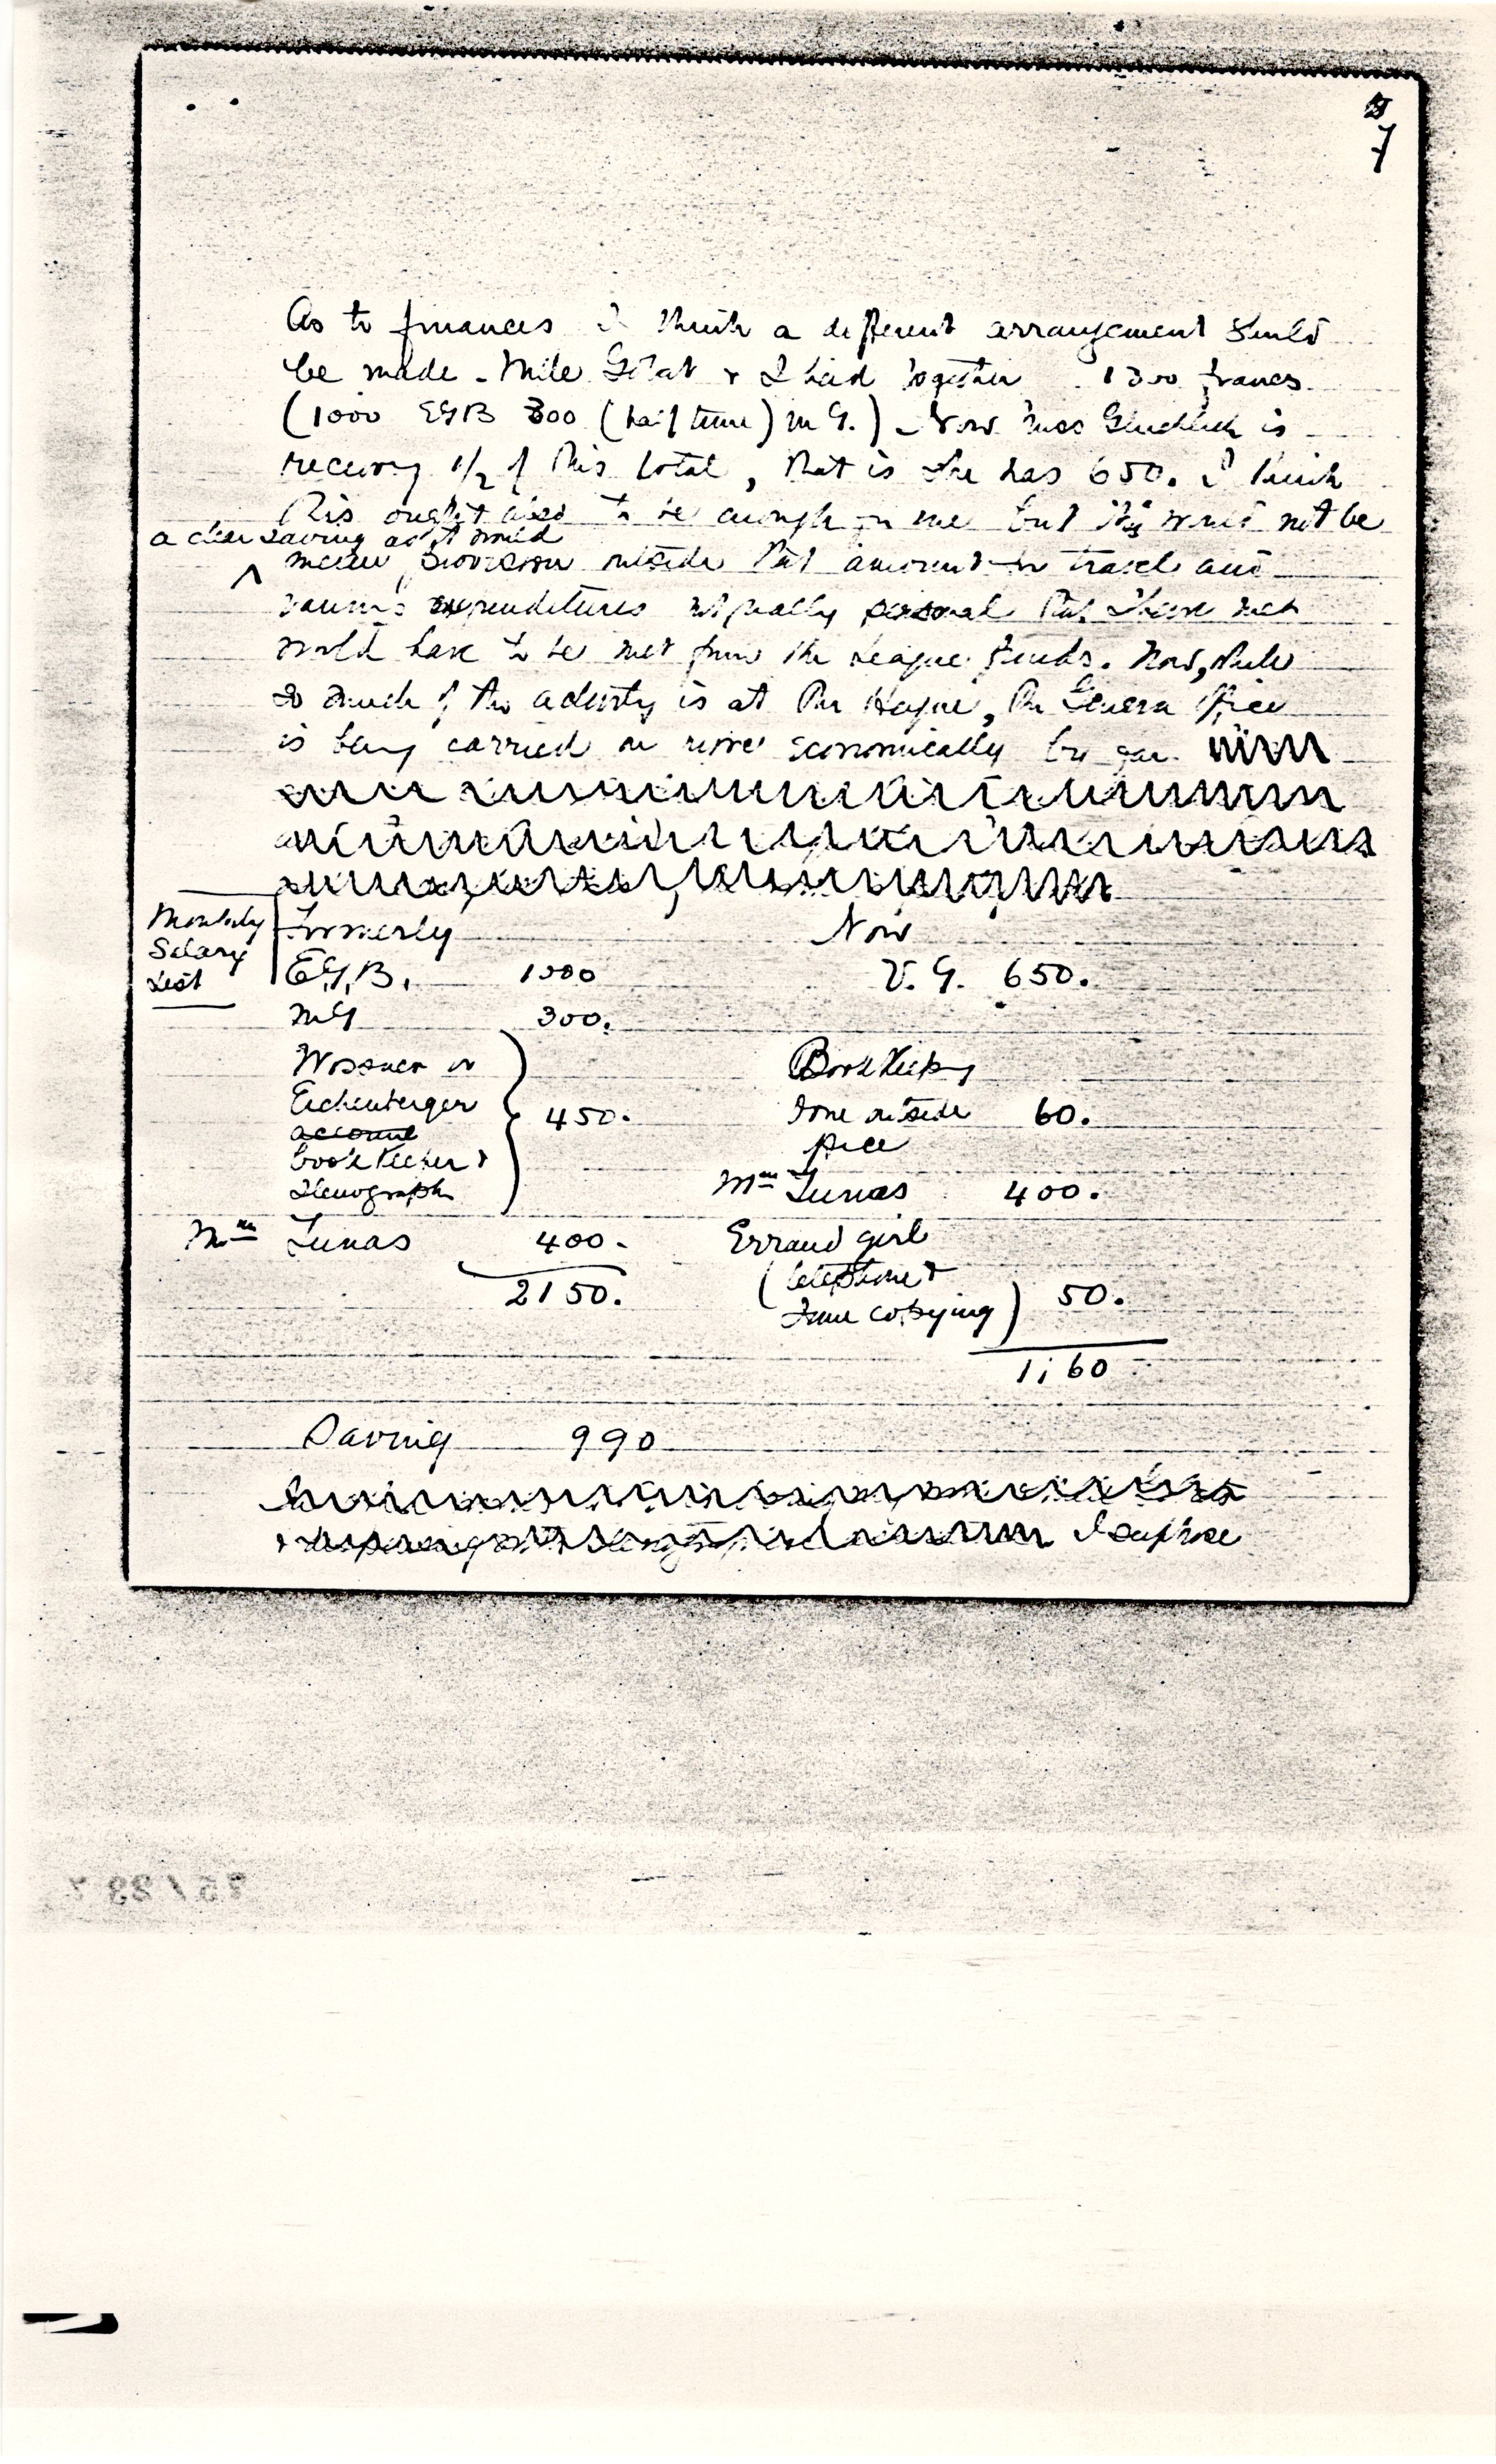 7
As to finances I think a different arrangement should
be made - Mlle Gobat & I had together 1300 francs
(1000 EGB 300 (half time) M G.) - Now Miss is
receiving 1/2 of this total, that is she has 650. I think
this ought also to be enough for me but this would not be
a clear saving as it would
mean provision outside that amount for travel and
various expenditures not really personal that I have met
would have to be met from the League funds. Now, while
so much of the activity is at the Hague, the Geneva Office
is being carried on more economically by far.
Monthly
Salary
List
Formerly Now
E.G.B. 1000 V. G. 650.
MG 300.
Wossner or Book Keeping
Eichenberger 450. done outside 60.
account office
book keeper &
stenograph Mme Lunas 400.
Mme Lunas 400. Errand girl
2150. (telephone &
some copying) 50.
1,60
Saving 990
I suppose
75/23 z